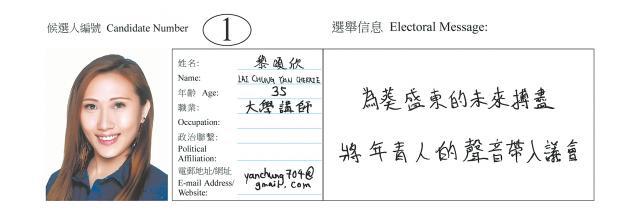 候選人編號 Candidate Number 1
選舉信息 Electoral Message:
姓名: 黎頌欣
Name: LAI CHUNG YAN CHERRIE
年齡 Age: 35
職業: 大學講師
Occupation:
政治聯繫:
Political
Affiliation:
電郵地址/網址 yanchung704@
E-mail Address/ gmail.com
Website:
為葵盛東的未來搏盡
將年青人的聲音帶入議會